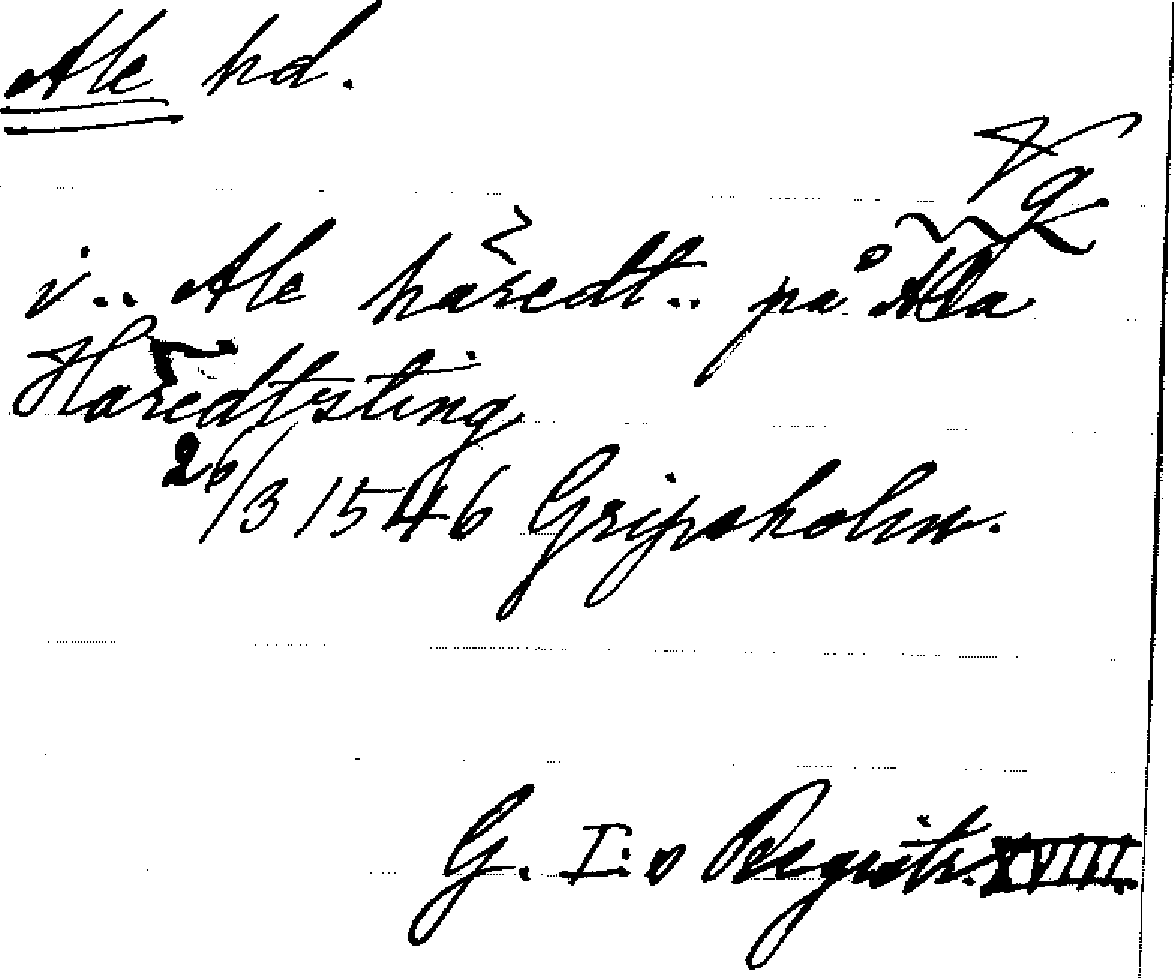 Ale hd.
Vg
i.. Ale häredt.. på Ala
Häredtsting
26/3 1546 Gripsholm.
G. I:s Registr. XVIII.